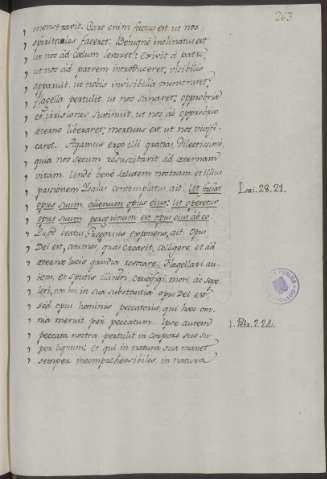 263
monstravit. Caro enim factus est ut nos
spirituales faceret. Benigne inclinatus est
ut nos ad Cœlum levaret: Exivit a patre,
ut nos ad patrem introduceret, visibilis
apparuit, ut nobis invisibilia monstraret,
flagella pertulit ut nos sanaret, opprobria
et irrisiones sustinuit, ut nos ab opprobrio
æterno liberaret, mortuus est ut nos vivifi-
caret. Agamus ergo illi gratias Dilectissimi,
quia nos secum resuscitavit ad æternam
vitam.
salutem nostram et illius
passionem Isaias contemplatus ait.
opus suum alienum opus ejus: ut operetur
opus suum peregrinum est opus ejus ab eo.
Isai. 28. 21.
Quod beatus Gregorius exponens, ait: Opus
Dei est, animas quas creavit, colligere et ad
æternæ lucis gaudia revocare. Flagellari au-
tem, et sputis illiniri, crucifigi, mori, ac sepe-
liri, non hoc in sua substantia opus Dei est,
sed opus hominis peccatoris, qui hæc om-
nia meruit per peccatum. Ipse autem
1. Petr. 2. 24.
peccata nostra pertulit in corpore suo su-
per lignum, et qui in natura sua manet
semper incomprehensibilis, in natura